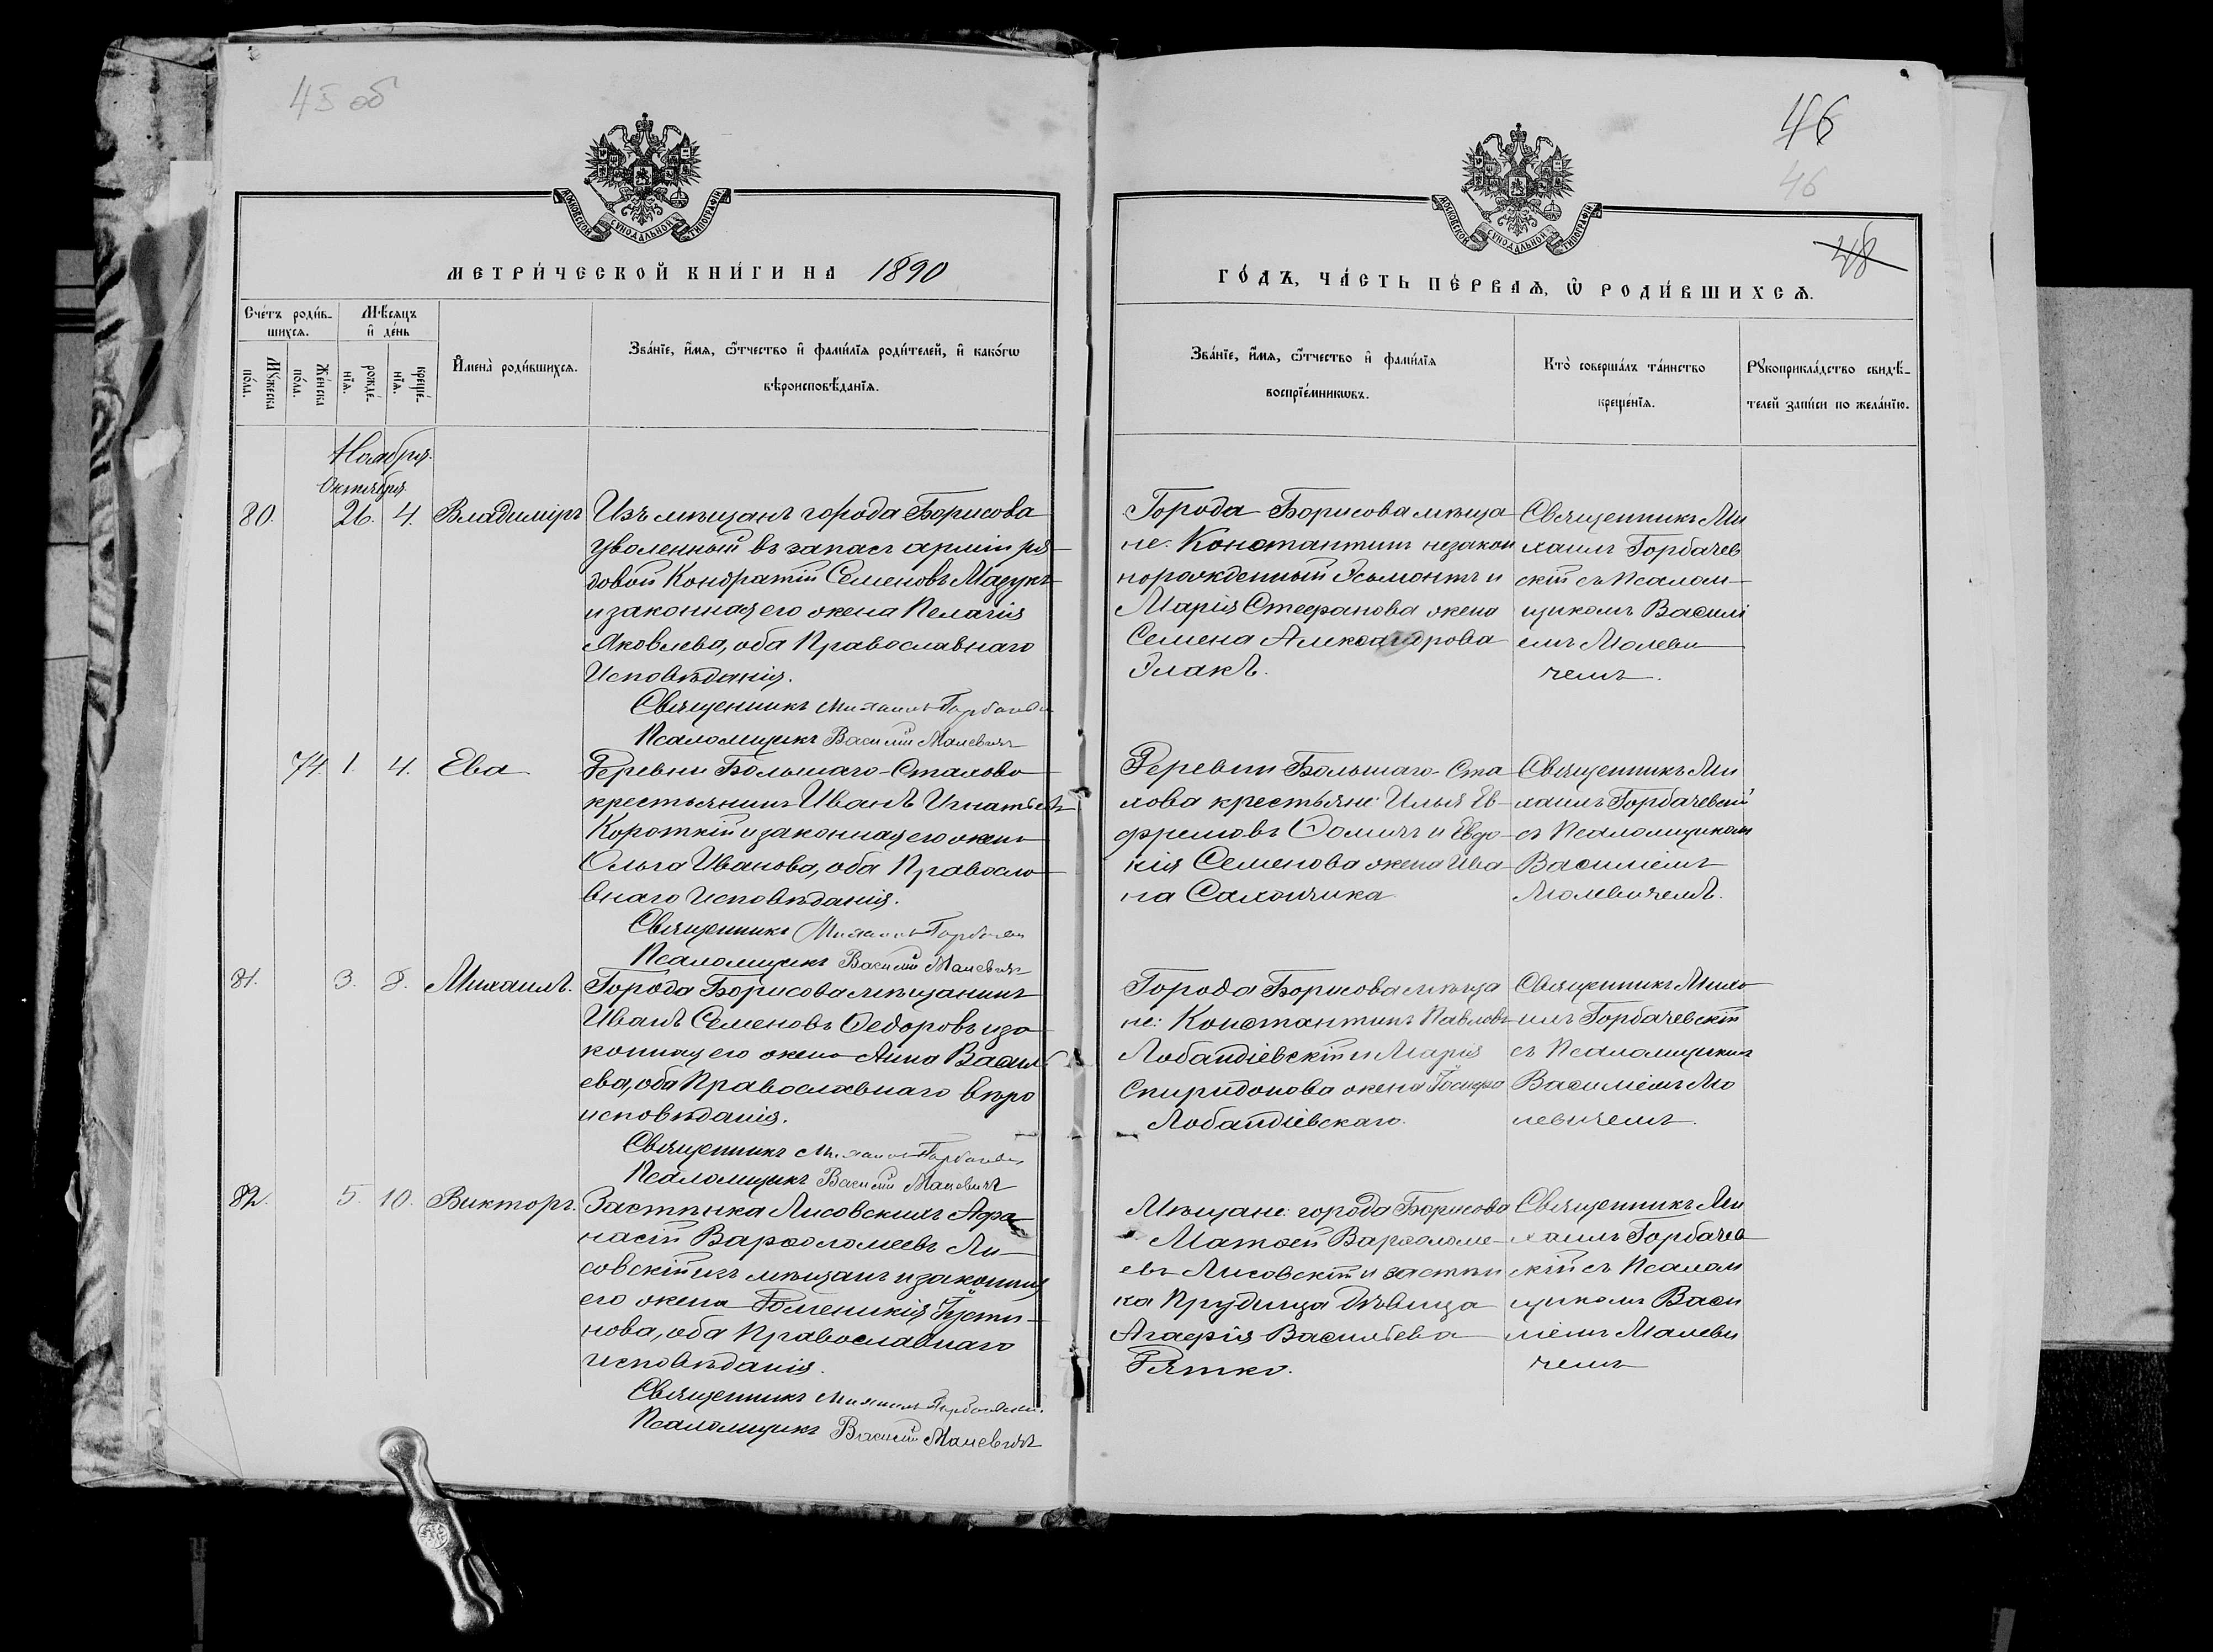 45 об
МОСКОВСКОЙ СѴНОДАЛЬНОЙ ТИПОГРАФІИ
МЕТРИ́ЧЕСКОЙ КНИ́ГИ НА 1890
Сче́тъ роди́в-
шихсѧ.
Мѣ́сѧцъ
и҆ де́нь
Мꙋ́жеска
по́ла.
Же́нска
по́ла.
рожде́-
нїѧ.
креще́-
нїѧ.
И҆мена̀ роди́вшихсѧ.
Зва́нїе, и҆́мѧ, ѻ҆́тчество и҆ фами́лїѧ роди́телей, и҆ како́гѡ
вѣроисповѣ́данїѧ.
Ноября.
Октября.
80. 26. 4. Владиміръ
Изъ мѣщанъ города Борисова
уволенный въ запасъ арміи ря-
довой Кондратій Семеновъ Мазукъ
и законная его жена Пелагія
Яковлева, оба Православнаго
Исповѣданія.
Священникъ Михаилъ
Псаломщикъ Василій Малевичъ
74 1. 4. Ева
Деревни Большаго-Стахова
крестьянинъ Иванъ Игнатьевъ
Короткій и законная его жена
Ольга Иванова, оба Правосла-
внаго Исповѣданія.
Священникъ Михаилъ
Псаломщикъ Василій Малевичъ
81. 3. 8. Михаилъ.
Города Борисова мѣщанинъ
Иванъ Семеновъ Ѳедоровъ и за-
конная его жена Анна Василь-
ева, оба Православнаго вѣро
исповѣданія.
Священникъ Михаилъ
Псаломщикъ Василій Малевичъ
82. 5. 10. Викторъ.
Застѣнка Лисовскихъ Афа-
насій Варѳоломеевъ Ли-
совскій изъ мѣщанъ и законная
его жена Доменикія Іусти-
нова, оба Православнаго
исповѣданія.
Священникъ Михаилъ
Псаломщикъ Василій Малевичъ
46
46
48
МОСКОВСКОЙ СѴНОДАЛЬНОЙ ТИПОГРАФІИ
ГО́ДЪ, ЧА́СТЬ ПЕ́РВАѦ, Ѡ҆ РОДИ́ВШИХСѦ.
Зва́нїе, и҆́мѧ, ѻ҆́тчество и҆ фами́лїѧ
воспрїе́мникѡвъ.
Кто̀ соверша́лъ та́инство
креще́нїѧ.
Рꙋкоприкла́дство свидѣ́-
телей за́писи по жела́нїю.
Города Борисова мѣща
не: Константинъ незакон
норожденный Эсьмонтъ и
Марія Стефанова жена
Семена Александрова
Элакъ.
Священникъ Ми
хаилъ Горбачев
скій съ Псалом-
щикомъ Василі
емъ Малеви
чемъ.
Деревни Большаго-Ста
хова крестьяне: Илья Ев-
фремовъ Ѳомичъ и Евдо-
кія Семенова жена Ива
на Сахончика
Священникъ Ми
хаилъ Горбачевскій
съ Псаломщикомъ
Василіемъ
Малевичемъ.
Города Борисова мѣща
не: Константинъ Павловъ
и Марія
Спиридонова жена Іосифа
Священникъ Миха
илъ Горбачевскій
съ Псаломщикомъ
Василіемъ Ма
левичемъ.
Мѣщане: города Борисова
Матѳей Варѳоломе-
евъ Лисовскій и застѣн
ка Прудища дѣвица
Агафія Васильева
Рятко.
Священникъ Ми
хаилъ Горбачев
скій съ Псалом
щикомъ Васи
ліемъ Малеви
чемъ